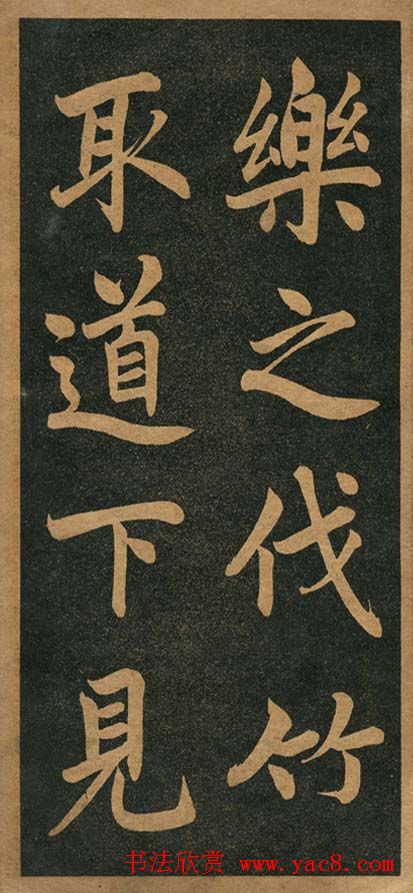 樂之伐竹
取道下見
书法欣赏 www.yac8.com